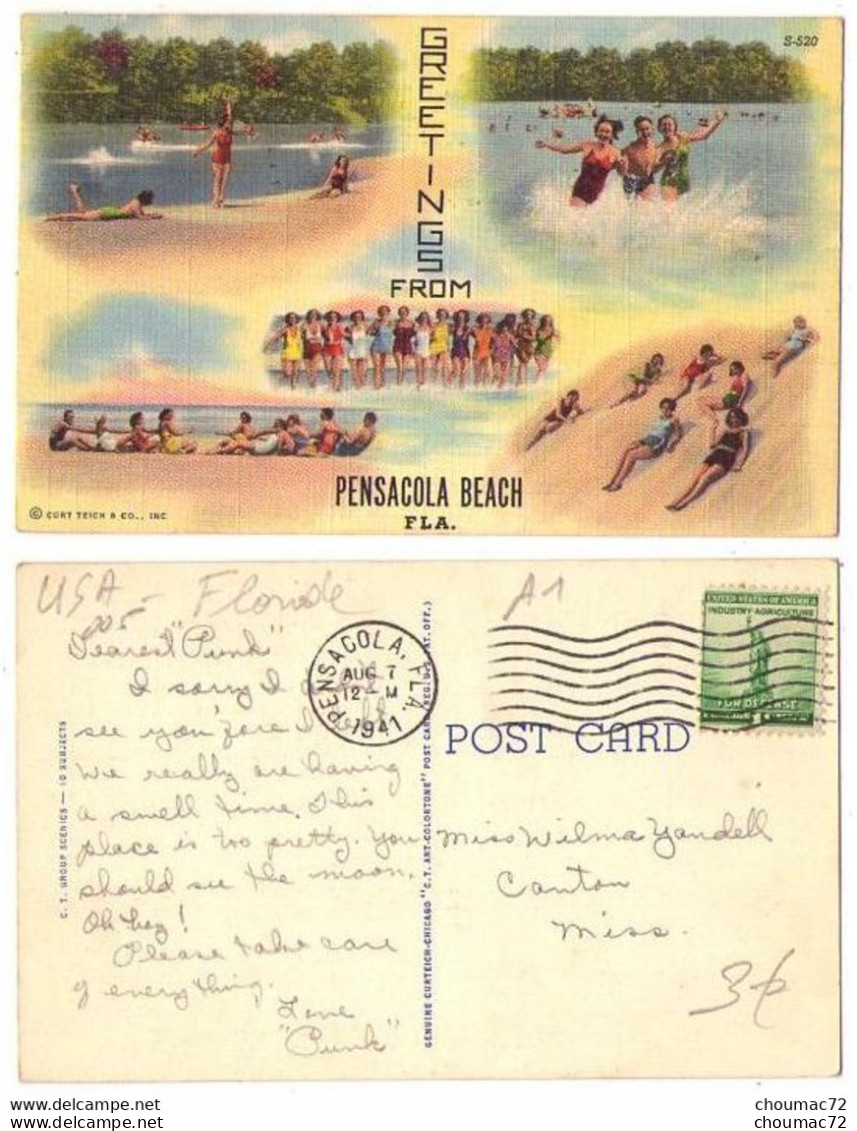 GREETINGS
FROM
S-520
PENSACOLA BEACH
FLA.
© CURT TEICH & CO., INC.
USA - Floride
A1
205
Dearest "Punk"
I sorry I
see you
We really are having
a swell time. This
place is too pretty. You
should see the moon.
Oh hey!
Please take care
of everything.
Love
"Punk"
C. T. GROUP SCENICS — 10 SUBJECTS
GENUINE CURTEICH-CHICAGO "C. T. ART-COLORTONE" POST CARD (REG. U.S. PAT. OFF.)
PENSACOLA, FLA.
AUG 7
12-M
1941
UNITED STATES OF AMERICA
INDUSTRY AGRICULTURE
FOR DEFENSE
POST CARD
Miss Wilma Yandell
Canton
Miss.
3€
Delcampe.net
choumac72
choumac72